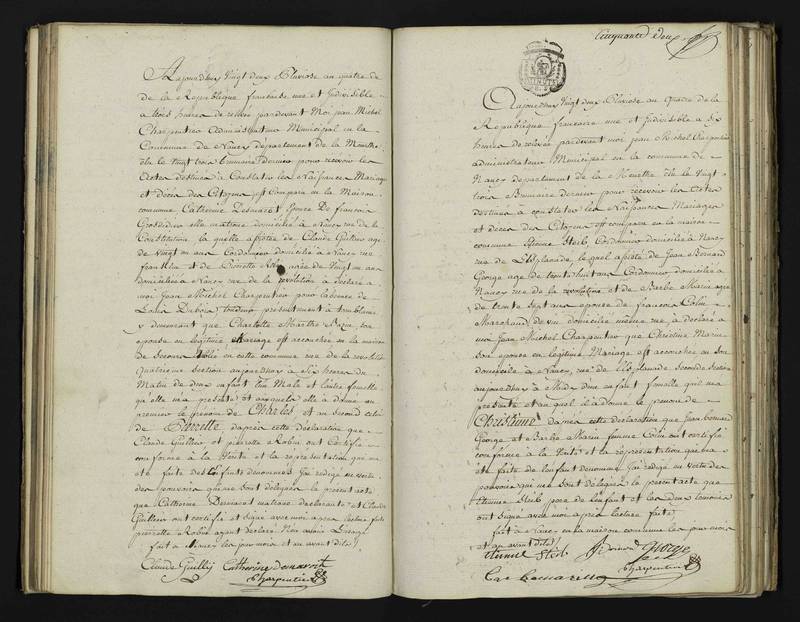 Aujourdhuy Vingt deux Pluviose an quatre de
de la Republique francaise une et Indivisible
a trois heures de relevee pardevant Moi jean Michel
Charpentier administrateur Municipal en la
Commune de Nancy departement de la Meurthe
élu le Vingt trois brumaire dernier pour recevoir les
Actes destinés a Constater les Naissances Mariages
et décès des Citoyens est Comparu en la Maison
commune Catherine Epouse De francois
matrone domicilié a Nancy rue de la
Constitution, la quelle assistée de Claude Guillier agé
de Vingt un ans Cordonnier domicilié a Nancy rue
franklin et de Pierrette Robin agée de Vingt un ans
domiciliée a Nancy rue de la révolution a déclaré a
moi Jean Michel Charpentier pour l'absence de
Louis Dubois, presentement a
y demeurant que Charlotte Marthe son
epouse en legitime Mariage est accouchée en la maison
De Secours en cette commune rue de la
quatrieme Section aujourdhuy a Six heures du
Matin de deux enfant l'un Male et l'autre femelle
qu'elle m'a presenté et auxquels elle a donné au
premier le prénom de Charles et au second celui
de d'après cette déclaration que
Claude Guillier et pierrette Robin ont Certifié
conforme à la Verité et la représentation qui m'a
été faite des Enfants denommés j'ai redigé en vertu
des pouvoirs qui me sont délégués le présent acte
que Catherine matrone declarante et Claude
Guillier ont certifié et signé avec moi apres lecture faite
pierrette Robin ayant declaré N'en avoir L'usage
fait a Nancy les jour mois et an avant dits
Claude Guillij Catherine
Charpentier
Cinquante deux
Aujourdhuy Vingt deux Pluviose an Quatre de la
Republique francaise une et Indivisible a Six
heures de relevee pardevant moi jean Michel Charpentier
administrateur Municipal en la commune de
Nancy departement de la Meurthe élu le Vingt
trois Brumaire dernier pour recevoir les Actes
destinés a constater les Naissances Mariages
et decès des Citoyens est comparu en la maison
commune Etienne Steib Cordonnier domicilié a Nancy
rue de L'Esplanade le quel assisté de Jean Bernard
George agé de trente huit ans Cordonnier domicilié a
Nancy rue de la révolution et de Barbe Marin agée
de trente Sept ans epouse de francois Colin
Marchand de vin domiciliée même rue a déclaré a
moi Jean Michel Charpentier que Christine Marin
Son epouse en legitime Mariage est accouchée en son
domicile à Nancy rue de l'Esplanade seconde Section
aujourdhuy a Midy d'une enfant femelle qu'il m'a
présenté et au quel il a donné le prenom de
Christinne d'après cette déclaration que Jean bernard
George et Barbe Marin femme Colin ont certifié
conforme à la Verité et la représentation que m'a
été faite de l'enfant denommé j'ai redigé en vertu des
pouvoirs qui me sont délégués le présent acte que
Etienne Steib pere de l'enfant et les deux temoins
ont Signé avec moi après lecture faite
fait a Nancy en la maison commune les jour mois
et an avant dits
Etienne Steib George
Charpentier